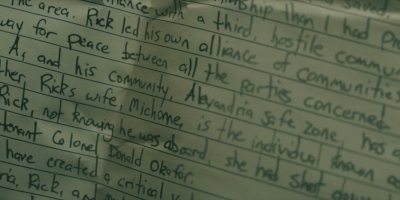 nship than I had
the area. Rick led his own alliance of communities
liance with a third, hostile commu
way for peace between all the parties concerned.
A, and his community, Alexandria Safe Zone, has a
ther, Rick's wife, Michonne, is the individual known as
Rick, not knowing he was aboard, she had shot down
tenant Colonel Donald Okafor.
have created a critical
ria, Rick, an